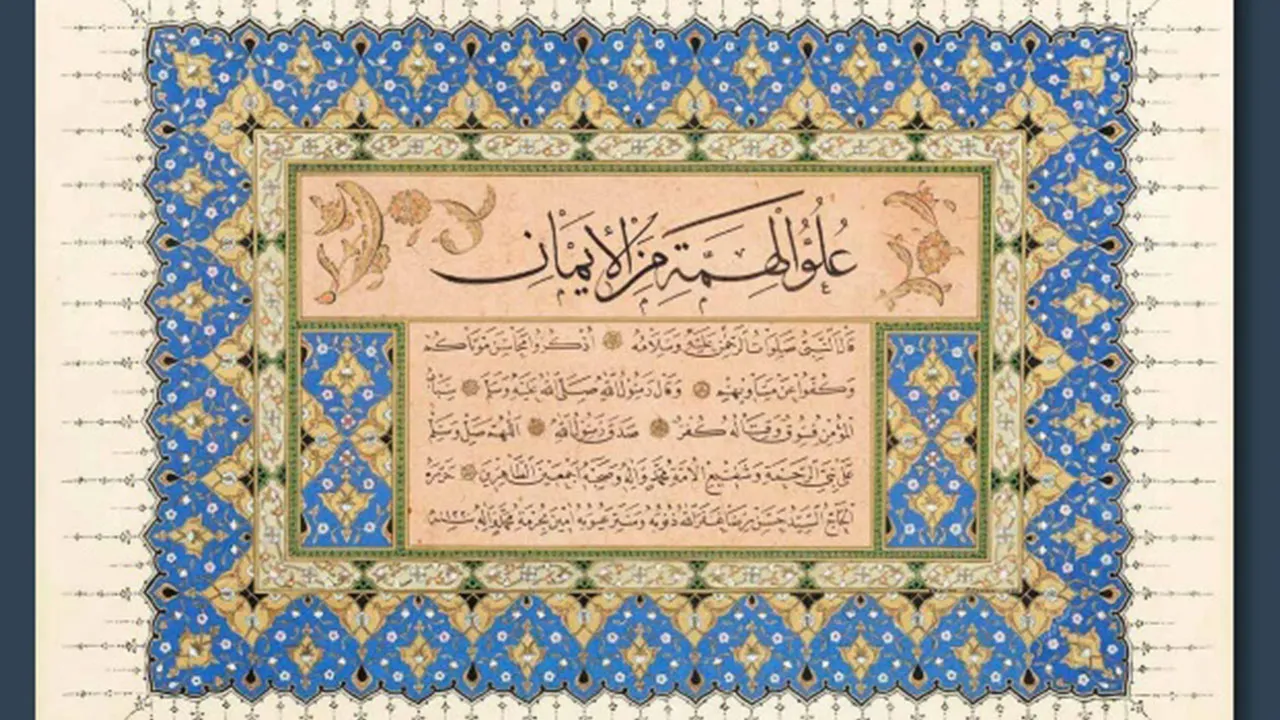 عُلُوُّ الْهِمَّةِ مِنَ الْإِيمَانِ
قَالَ النَّبِيُّ صَلَوَاتُ الرَّحْمٰنِ عَلَيْهِ وَسَلَامُهُ اُذْكُرُوا مَحَاسِنَ مَوْتَاكُمْ
وَكُفُّوا عَنْ مَسَاوِيهِمْ وَقَالَ رَسُولُ اللّٰهِ صَلَّى اللّٰهُ عَلَيْهِ وَسَلَّمَ سِبَابُ
الْمُؤْمِنِ فُسُوقٌ وَقِتَالُهُ كُفْرٌ صَدَقَ رَسُولُ اللّٰهِ اَللّٰهُمَّ صَلِّ وَسَلِّمْ
عَلَى نَبِيِّ الرَّحْمَةِ وَشَفِيعِ الْأُمَّةِ مُحَمَّدٍ وَآلِهِ وَصَحْبِهِ أَجْمَعِينَ الطَّاهِرِينَ حَرَّرَهُ
الْحَاجُّ السَّيِّدُ حَسَنْ رِضَا غَفَرَ اللّٰهُ ذُنُوبَهُ وَسَتَرَ عُيُوبَهُ آمِينَ بِحُرْمَةِ مُحَمَّدٍ وَآلِهِ سَنَة